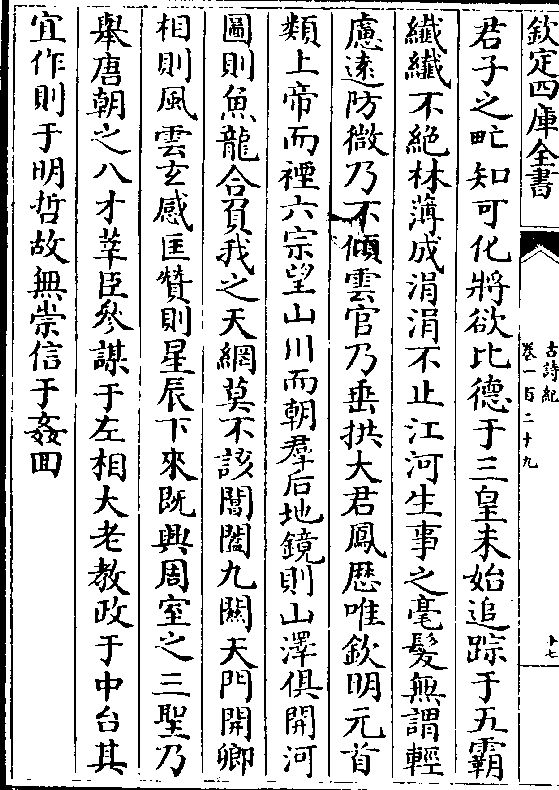 欽定四庫全書
古詩紀
卷一百二十九
十七
君子之甿知可化將欲比德于三皇未始追踪于五霸
纎纎不絕林薄成涓涓不止江河生事之毫髮無謂輕
慮遠防微乃不傾雲官乃垂拱大君鳳歴唯欽明元首
類上帝而禋六宗望山川而朝羣后地鏡則山澤俱開河
圖則魚龍合負我之天網莫不該閶闔九關天門開卿
相則風雲玄感匡贊則星辰下來既興周室之三聖乃
舉唐朝之八才莘臣參謀于左相大老教政于中台其
宜作則于明哲故無崇信于姦囬